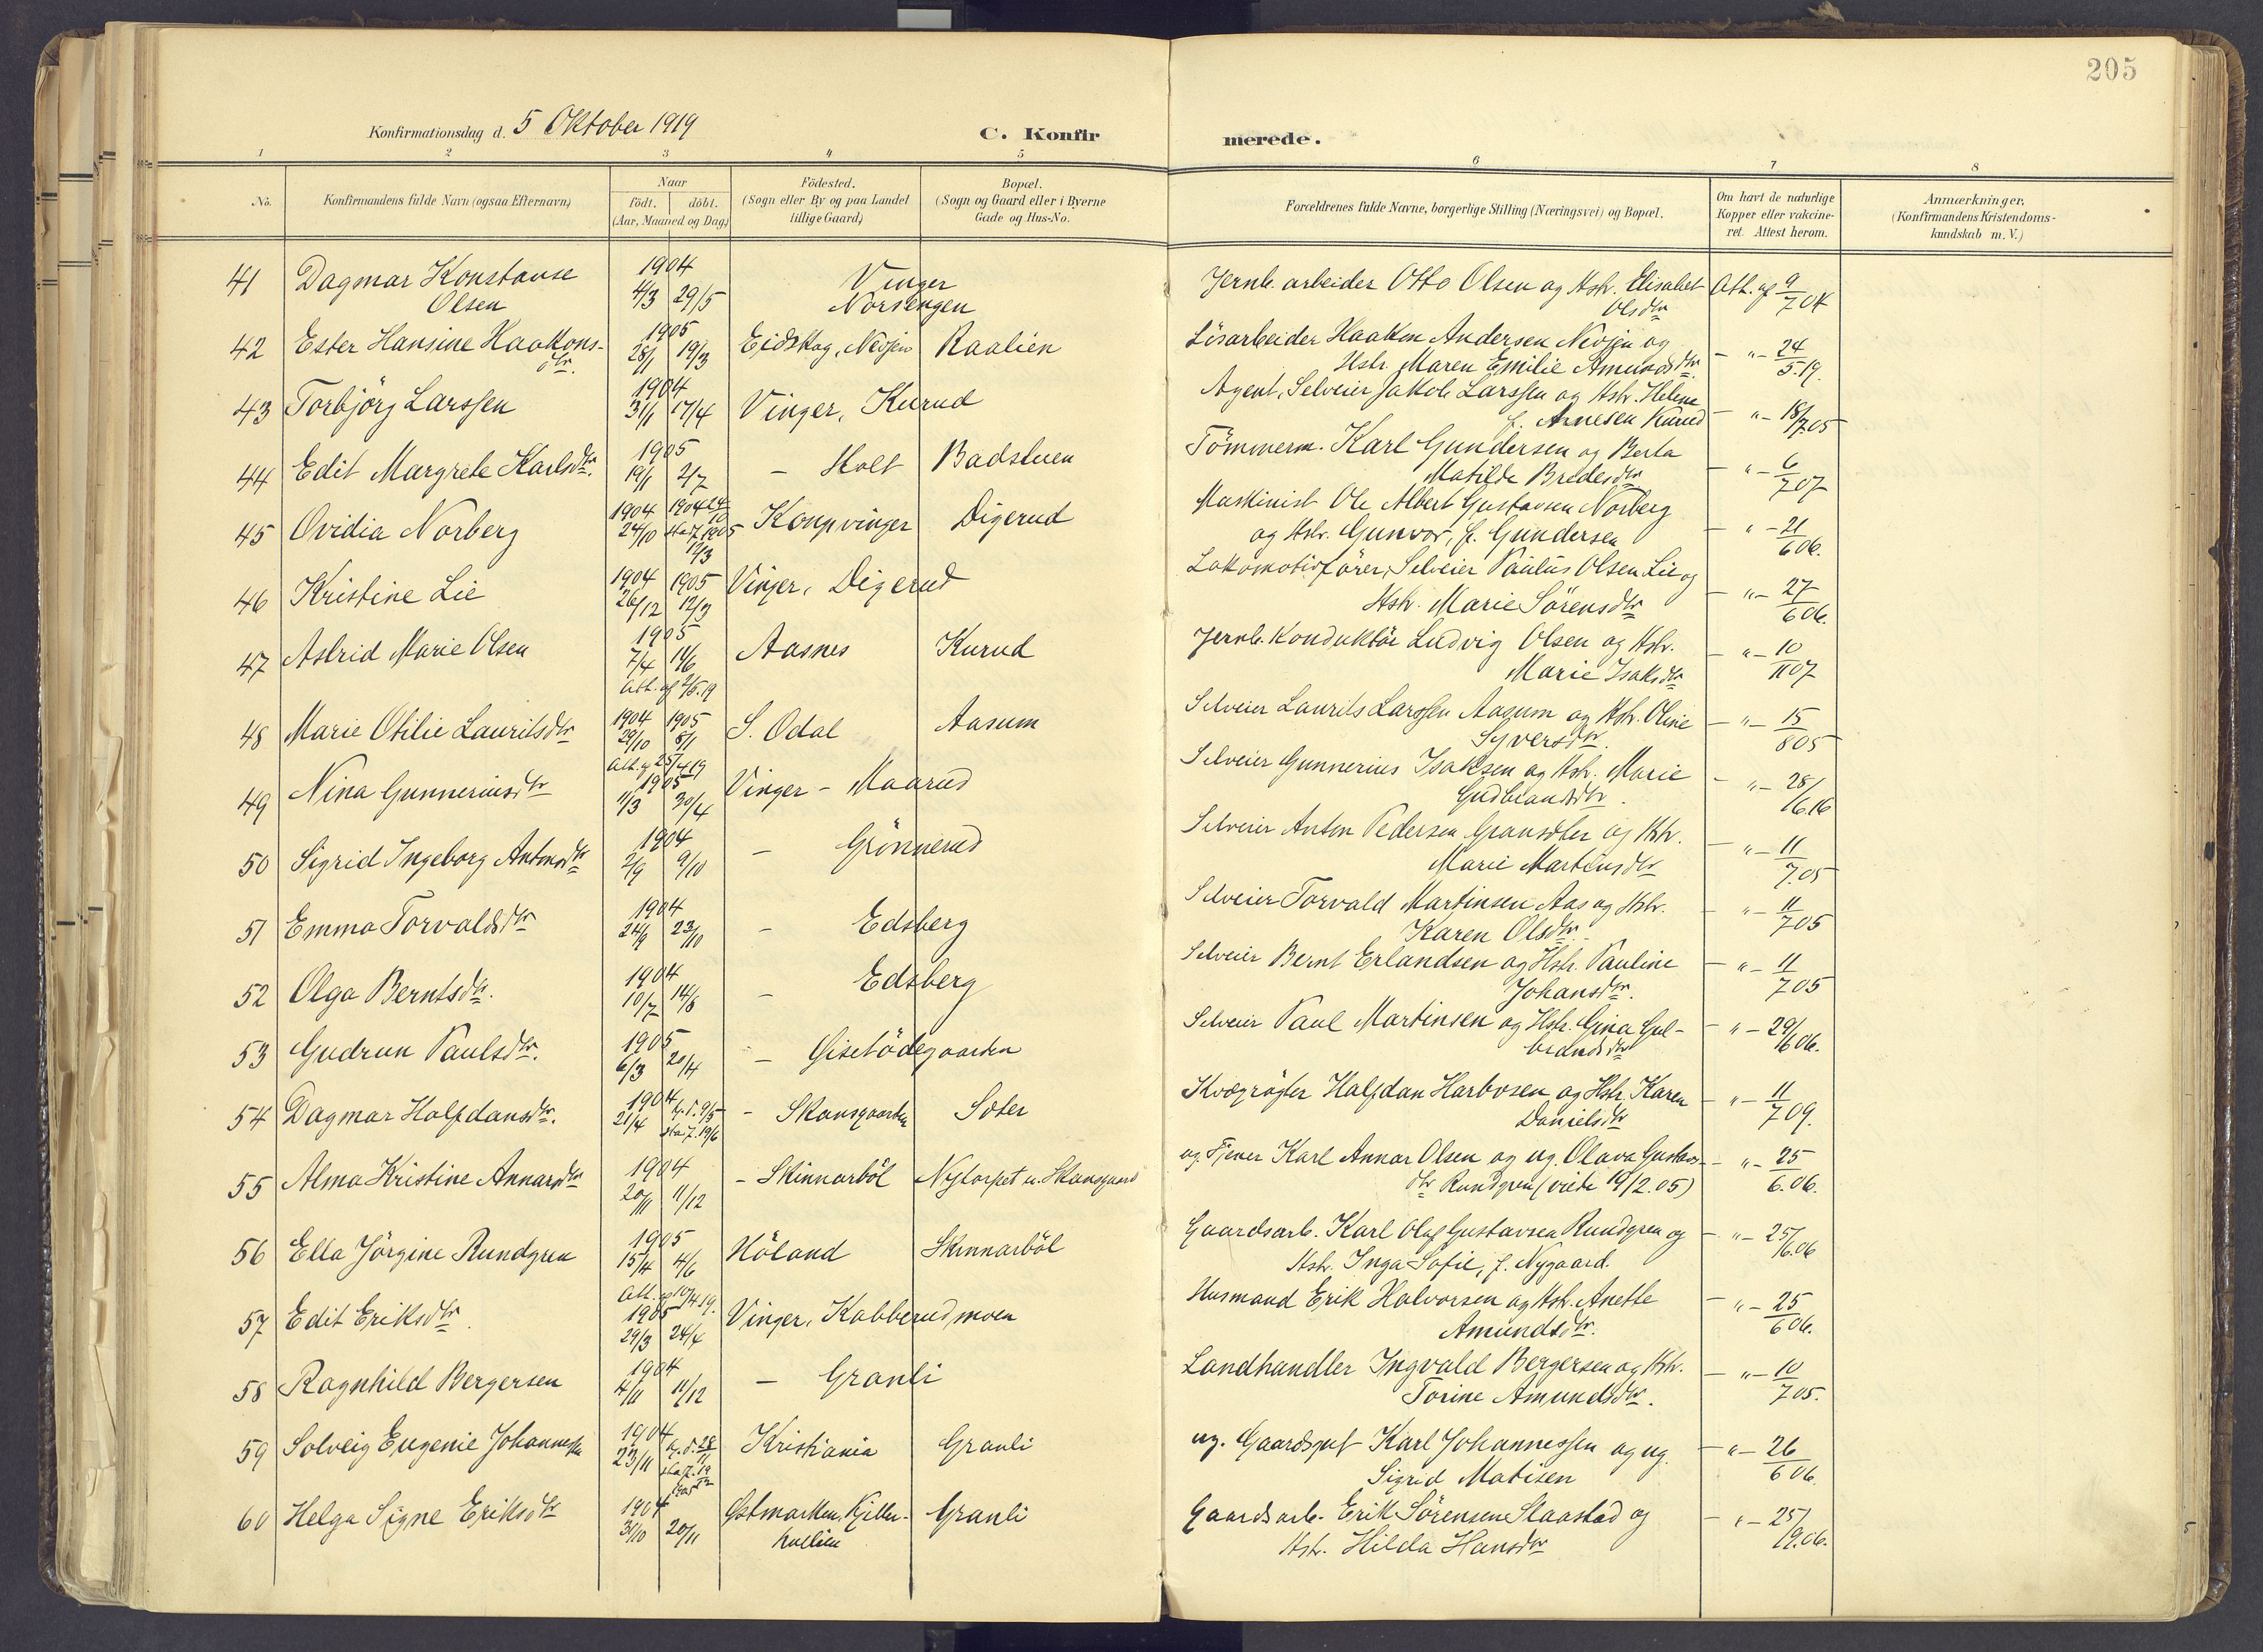 205
Konfirmationsdag d. 5 Oktober 1919
C. Konfir
merede.
1 2 3 4 5 6 7 8
No.
Konfirmandens fulde Navn (ogsaa Efternavn)
Naar
födt. döbt.
(Aar, Maaned og Dag)
Födested.
(Sogn eller By og paa Landet
tillige Gaard)
Bopæl.
(Sogn og Gaard eller i Byerne
Gade og Hus-No.
Forældrenes fulde Navne, borgerlige Stilling (Næringsvei) og Bopæl.
Om havt de naturlige
Kopper eller vakcine-
ret. Attest herom.
Anmærkninger.
(Konfirmandens Kristendoms-
kundskab m. V.)
41 Dagmar Konstanse
Olsen
1904
4/3 29/5
Vinger
Norsengen
Jernb. arbeider Otto Olsen og Hstr. Elisabet
Olsdtr
Att. af 9/7 04
42 Ester Hansine Haakons-
dtr.
1905
28/1 19/3
Eidskog, Nevjen Raalien
Lösarbeider Haaken Andersen Nevjen og
Hstr. Maren Emilie Amundsdtr
- " - 24/5.19.
43 Torbjörg Larssen
1904
31/1 17/4
Vinger, Kurud
Agent, Selveier Jakob Larssen og Hstr. Helene
f. Arnesen Kurud
- " - 18/7.05
44 Edit Margrete Karlsdtr.
1905
19/1 2/7
- Holt Badstuen
Tömmerm. Karl Gundersen og Berta
Matilde Bredesdtr
- " - 6/7 07
45 Ovidia Norberg
1904 1904 24/10
24/10 stadf. 1905
12/3
Kongvinger Digerud
Maskinist Ole Albert Gustavsen Norberg
og Hstr. Gunvor, f. Gundersen
- " - 21/6 06.
46 Kristine Lie
1904 1905
26/12 12/3
Vinger, Digerud
Lokomotivförer, Selveier Paulus Olsen Lie og
Hstr. Marie Sörensdtr
- " - 27/6 06.
47 Astrid Marie Olsen
1905
7/4 11/6
Att. af 2/5.19
Aasnes Kurud
Jernb. Konduktör Ludvig Olsen og Hstr.
Marie Isaksdtr
- " - 10/11 07
48 Marie Otilie Lauritsdtr
1904 1905
29/10 8/1
Att. af 25/4 19
S. Odal Aasum
Selveier Laurits Larssen Aasum og Hstr. Oline
Syversdtr.
- " - 15/8 05
49 Nina Gunneriusdtr
1905
11/3 30/4
Vinger - Maarud
Selveier Gunnerius Isaksen og Hstr. Marie
Gudbrandsdtr.
- " - 28/6.16
50 Sigrid Ingeborg Antonsdtr
1904
2/9 9/10
- Grönnerud
Selveier Anton Pedersen og Hstr.
Marie Martinsdtr
- " - 11/7.05
51 Emma Torvaldsdtr
1904
24/9 23/10
- Edsberg
Selveier Torvald Martinsen Aas og Hstr.
Karen Olsdtr.
- " - 11/7 05
52 Olga Berntsdtr.
1904
10/7 14/8
- Edsberg
Selveier Bernt Erlandsen og Hstr. Pauline
Johansdtr.
- " - 11/7 05
53 Gudrun Paulsdtr.
1905
6/3 20/4
- Gisetödegaarden
Selveier Paul Martinsen og Hstr. Gina Gul-
brandsdtr
- " - 29/6 06.
54 Dagmar Halfdansdtr.
1904
21/4 hj.d. 9/5
stadf. 19/6
- Skansgaarden Sæter
Kvægrögter Halfdan Harbosen og Hstr. Karen
Danielsdtr
- " - 11/7 09.
55 Alma Kristine Annarsdtr
1904
20/11 11/12
- Skinnarböl Nytorpet u. Skansgaard
ug. Tjener Karl Annar Olsen og ug. Olava Gustavs-
dtr Rundgren (viede 19/2.05)
- " - 25/6.06.
56 Ella Jörgine Rundgren
1905
15/4 4/6
Att. af 10/4 19.
Höland Skinnarböl
Gaardsarb. Karl Olaf Gustavsen Rundgren og
Hstr. Inga Sofie, f. Nygaard.
- " - 25/6.06
57 Edit Eriksdtr.
1905
29/3 24/4
Vinger, Kabberudmoen
Husmand Erik Halvorsen og Hstr. Anette
Amundsdtr.
- " - 25/6 06.
58 Ragnhild Bergersen
1904
4/11 11/12
- Granli
Landhandler Ingvald Bergersen og Hstr.
Torine Amundsdtr.
- " - 10/7 05.
59 Solveig Eugenie Johannessen
1904
23/11 hj.d. 28/11
stadf. 19
Kristiania Granli
ug. Gaardsgut Karl Johannessen og ug.
Sigrid Matisen
- " - 26/6 06.
60 Helga Signe Eriksdtr
1904
31/10 20/11
Östmarken, Kjeller- Granli
hullien
Gaardsarb. Erik Sörensen Slaastad og
Hstr. Hilda Hansdtr
- " - 25/9.06.